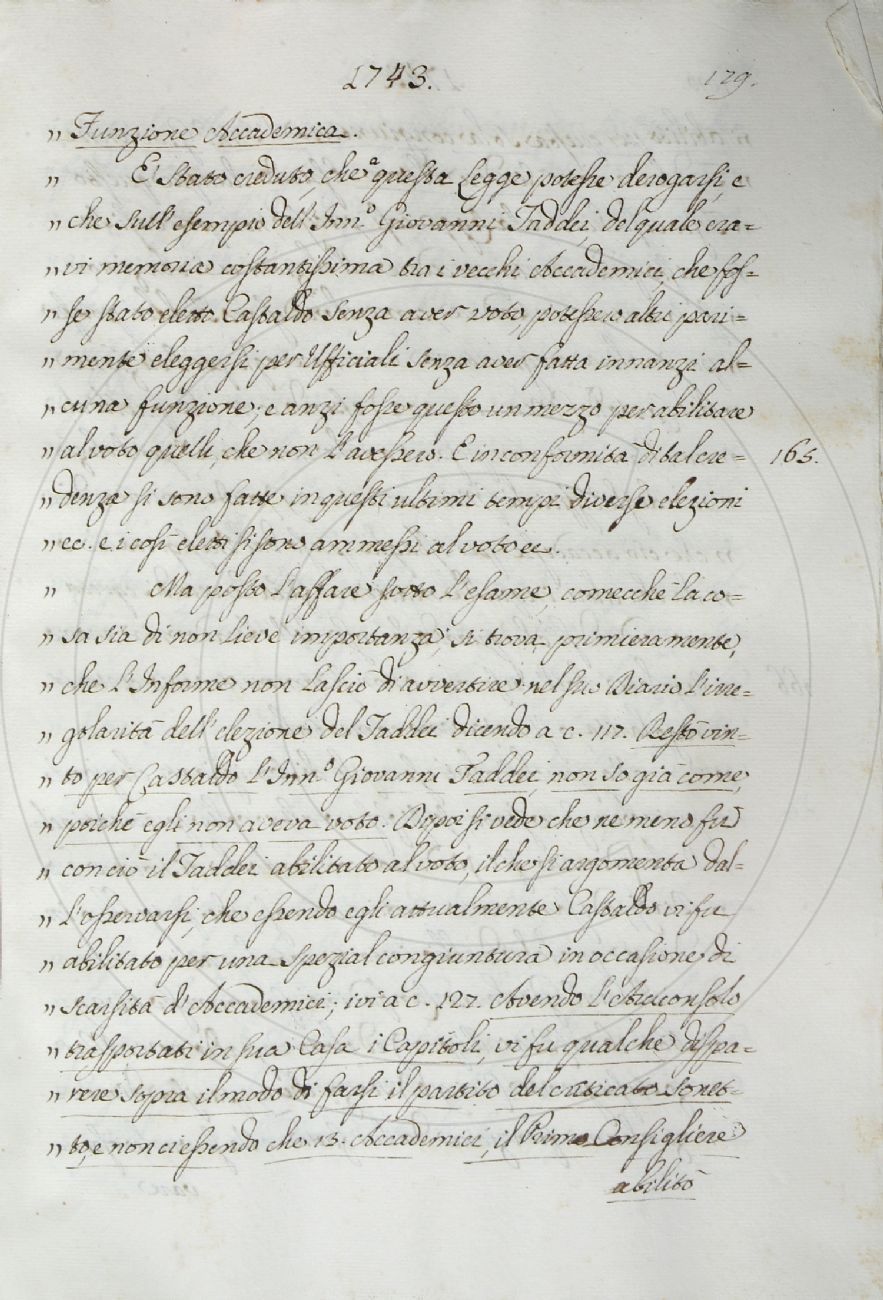 1743. 129.
" Funzione Accademica.
" E' stato creduto, che a questa Legge potesse derogarsi, e
" che sull'esempio dell'Inn.º Giovanni Taddei, del quale era=
" vi memoria costantissima tra i vecchi Accademici, che fos=
" se stato eletto Castaldo senza aver voto potessero altri pari=
" mente eleggersi per Ufficiali senza aver fatta innanzi al=
" cuna funzione; e anzi fosse questo un mezzo per abilitare
" al voto quelli, che non l'avessero. E in conformità di tal cre= 165.
" denza si sono fatte in questi ultimi tempi diverse elezioni
" ec. e i così eletti si sono ammessi al voto ec.
" Ma posto l'affare sotto l'esame, comecchè la co=
" sa sia di non lieve importanza, si trova primieramente,
" che l'Informe non lasciò di avvertire nel suo Diario l'irre=
" golarità dell'elezione del Taddei dicendo a c. 117. Restò vin=
" to per Castaldo l'Inn.º Giovanni Taddei, non so già come,
" poichè egli non aveva voto. Dipoi si vede che ne meno fu
" con ciò il Taddei abilitato al voto, il che si argomenta dal=
" l'osservarsi, che essendo egli attualmente Castaldo vi fu
" abilitato per una spezial congiuntura in occasione di
" scarsità d'Accademici; ivi a c. 127. Avendo l'Arciconsolo
" trasportati in sua Casa i Capitoli, vi fu qualche dispa=
" rere sopra il modo di farsi il partito del criticato sonet=
" to, e non ci essendo che 13. Accademici, il Primo Consigliere
abilitò